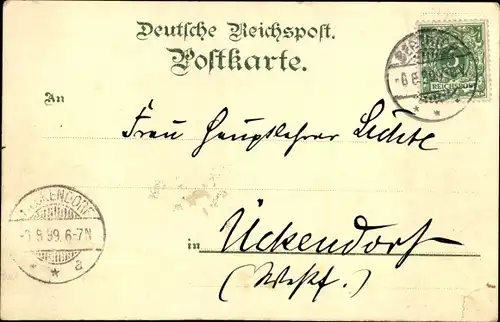 Deutsche Reichspost.
Postkarte.
An
Frau Hauptlehrer Lichte
in Ückendorf
(Westf.)
5
REICHSPOST
-6 8 99
ÜCKENDORF
8 99. 6-7N
* * a